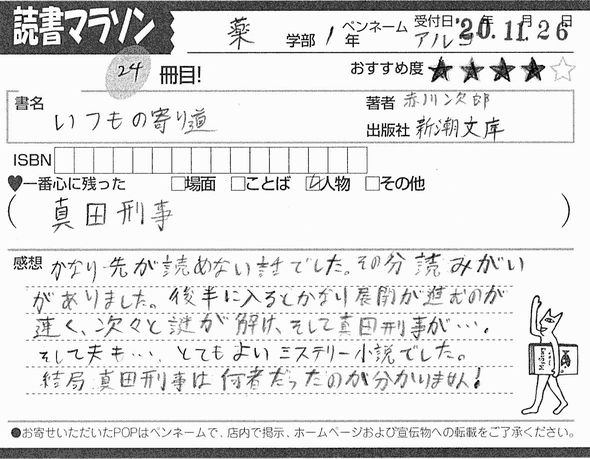 読書マラソン
薬 学部 1 年
ペンネーム アルコ
受付日 '20.11.26 年 月 日
24 冊目!
おすすめ度 ★★★★☆
書名 いつもの寄り道
著者 赤川次郎
出版社 新潮文庫
ISBN
♥一番心に残った □場面 □ことば ☑人物 □その他
( 真田刑事 )
感想 かなり先が読めない話でした。その分読みがい
がありました。後半に入るとかなり展開が進むのが
速く、次々と謎が解け、そして真田刑事が…。
そして夫も…、とてもよいミステリー小説でした。
結局真田刑事は何者だったのか分かりません!
●お寄せいただいたPOPはペンネームで、店内で掲示、ホームページおよび宣伝物への転載をご了承ください。